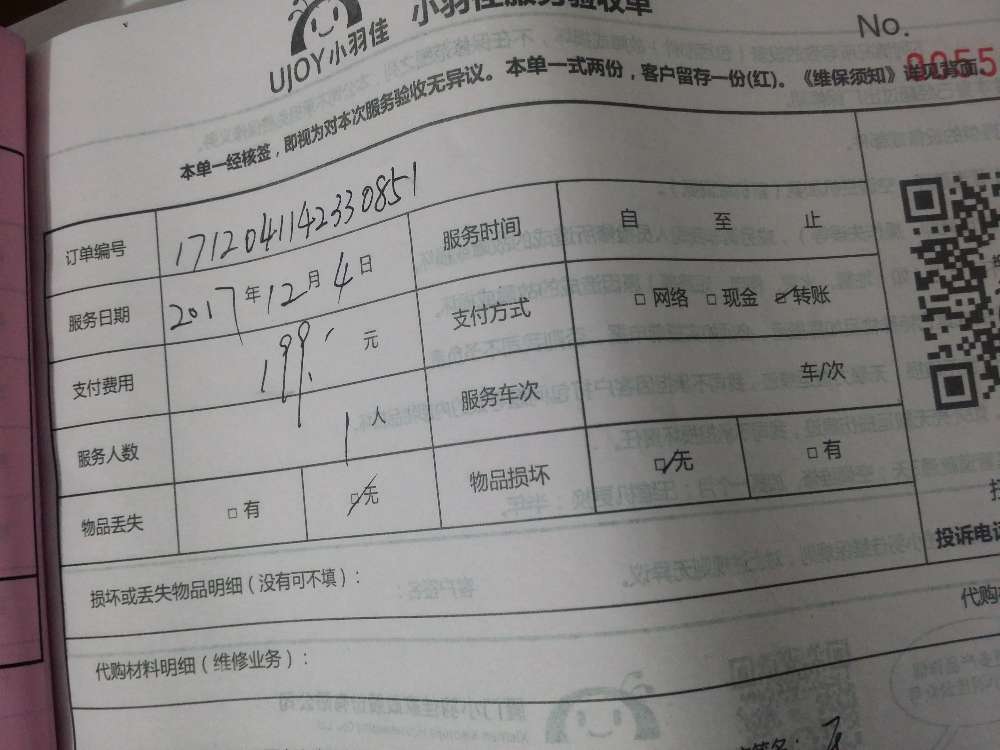 小羽佳服务验收单
UJOY小羽佳
No.
0055
本单一经核签，即视为对本次服务验收无异议。本单一式两份，客户留存一份(红)。《维保须知》详见背面。
订单编号 1712041142330851 服务时间 自 至 止
服务日期 2017年12月4日 支付方式 □ 网络 □ 现金 ☑ 转账
支付费用 199.- 元 服务车次 车/次
服务人数 1人
物品丢失 □ 有 ☑ 无 物品损坏 ☑ 无 □ 有
投诉电话
损坏或丢失物品明细（没有可不填）：
代购
代购材料明细（维修业务）：